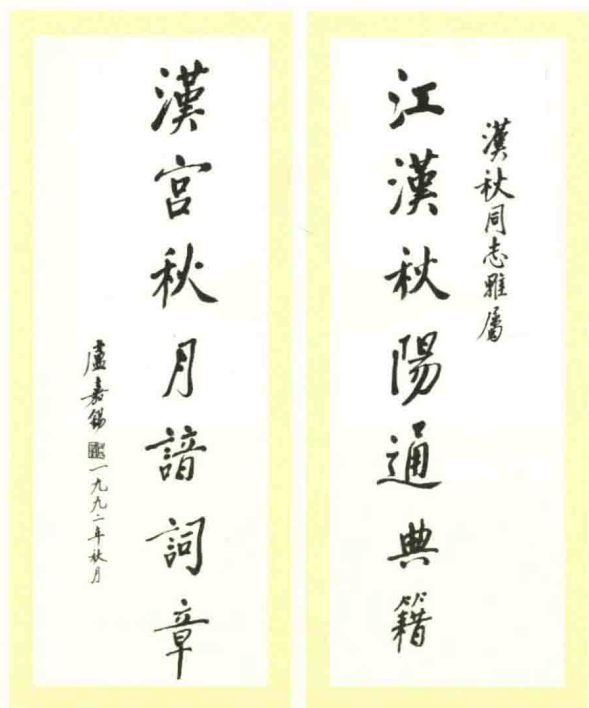 漢秋同志雅屬
江漢秋陽通典籍
漢宮秋月諳詞章
盧嘉錫
一九九二年秋月